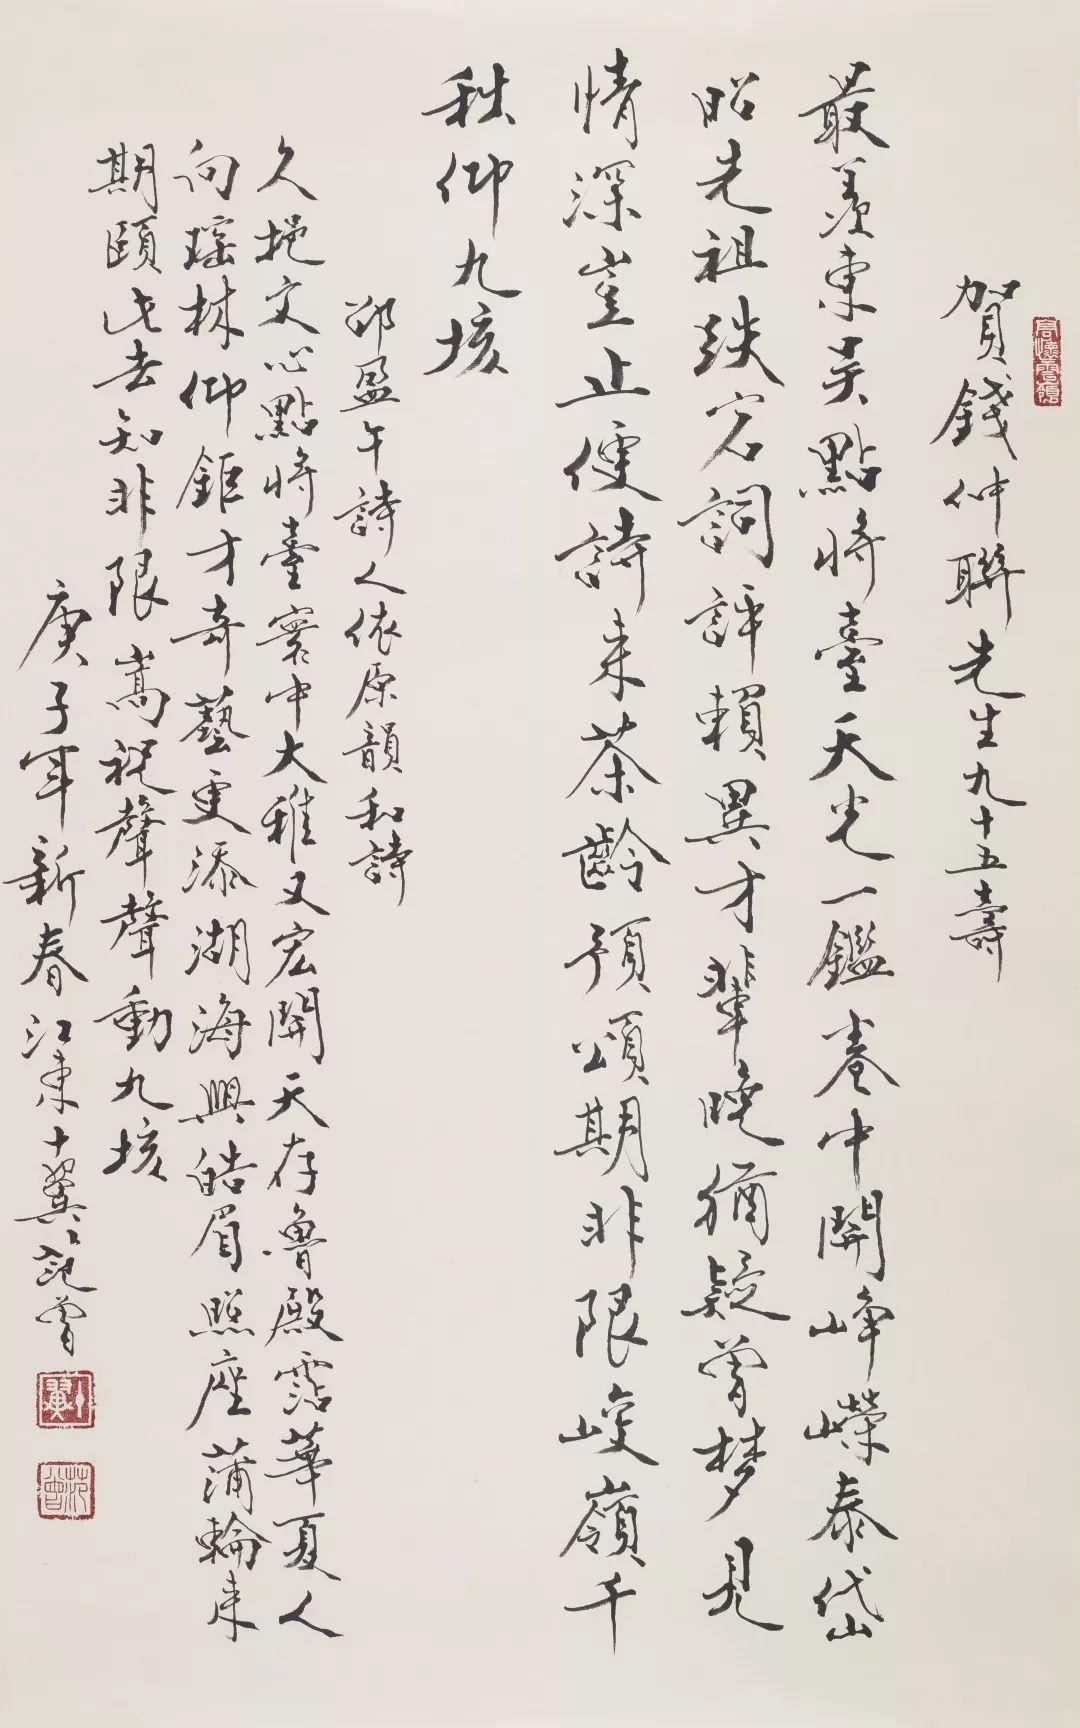 賀錢仲聯先生九十五壽
最羨東吳點將臺天光一鑑卷中開崢嶸泰岱
昭先祖跌宕詞評賴異才輩晚猶疑曾夢見
情深豈止僅詩來茶齡預頌期非限峻嶺千
秩仰九垓
邵盈午詩人依原韻和詩
久挹文心點將臺寰中大雅又宏開天存魯殿霑華夏人
向瑤林仰鉅才奇藝更添湖海興皓眉照座蒲輪來
期頤此去知非限嵩祝聲聲動九垓
庚子年新春江東十翼范曾
十翼
范曾